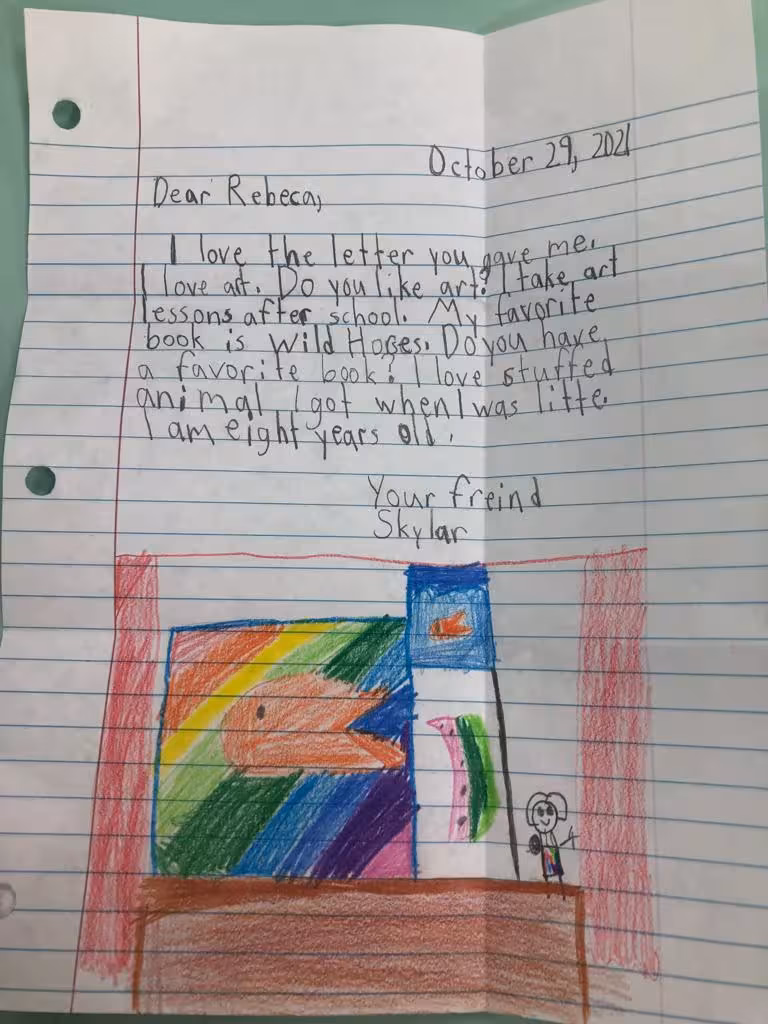 October 29, 2021
Dear Rebeca,
I love the letter you gave me.
I love art. Do you like art? I take art
lessons after school. My favorite
book is Wild Horses. Do you have
a favorite book? I love stuffed
animal I got when I was litte.
I am eight years old.
Your freind
Skylar